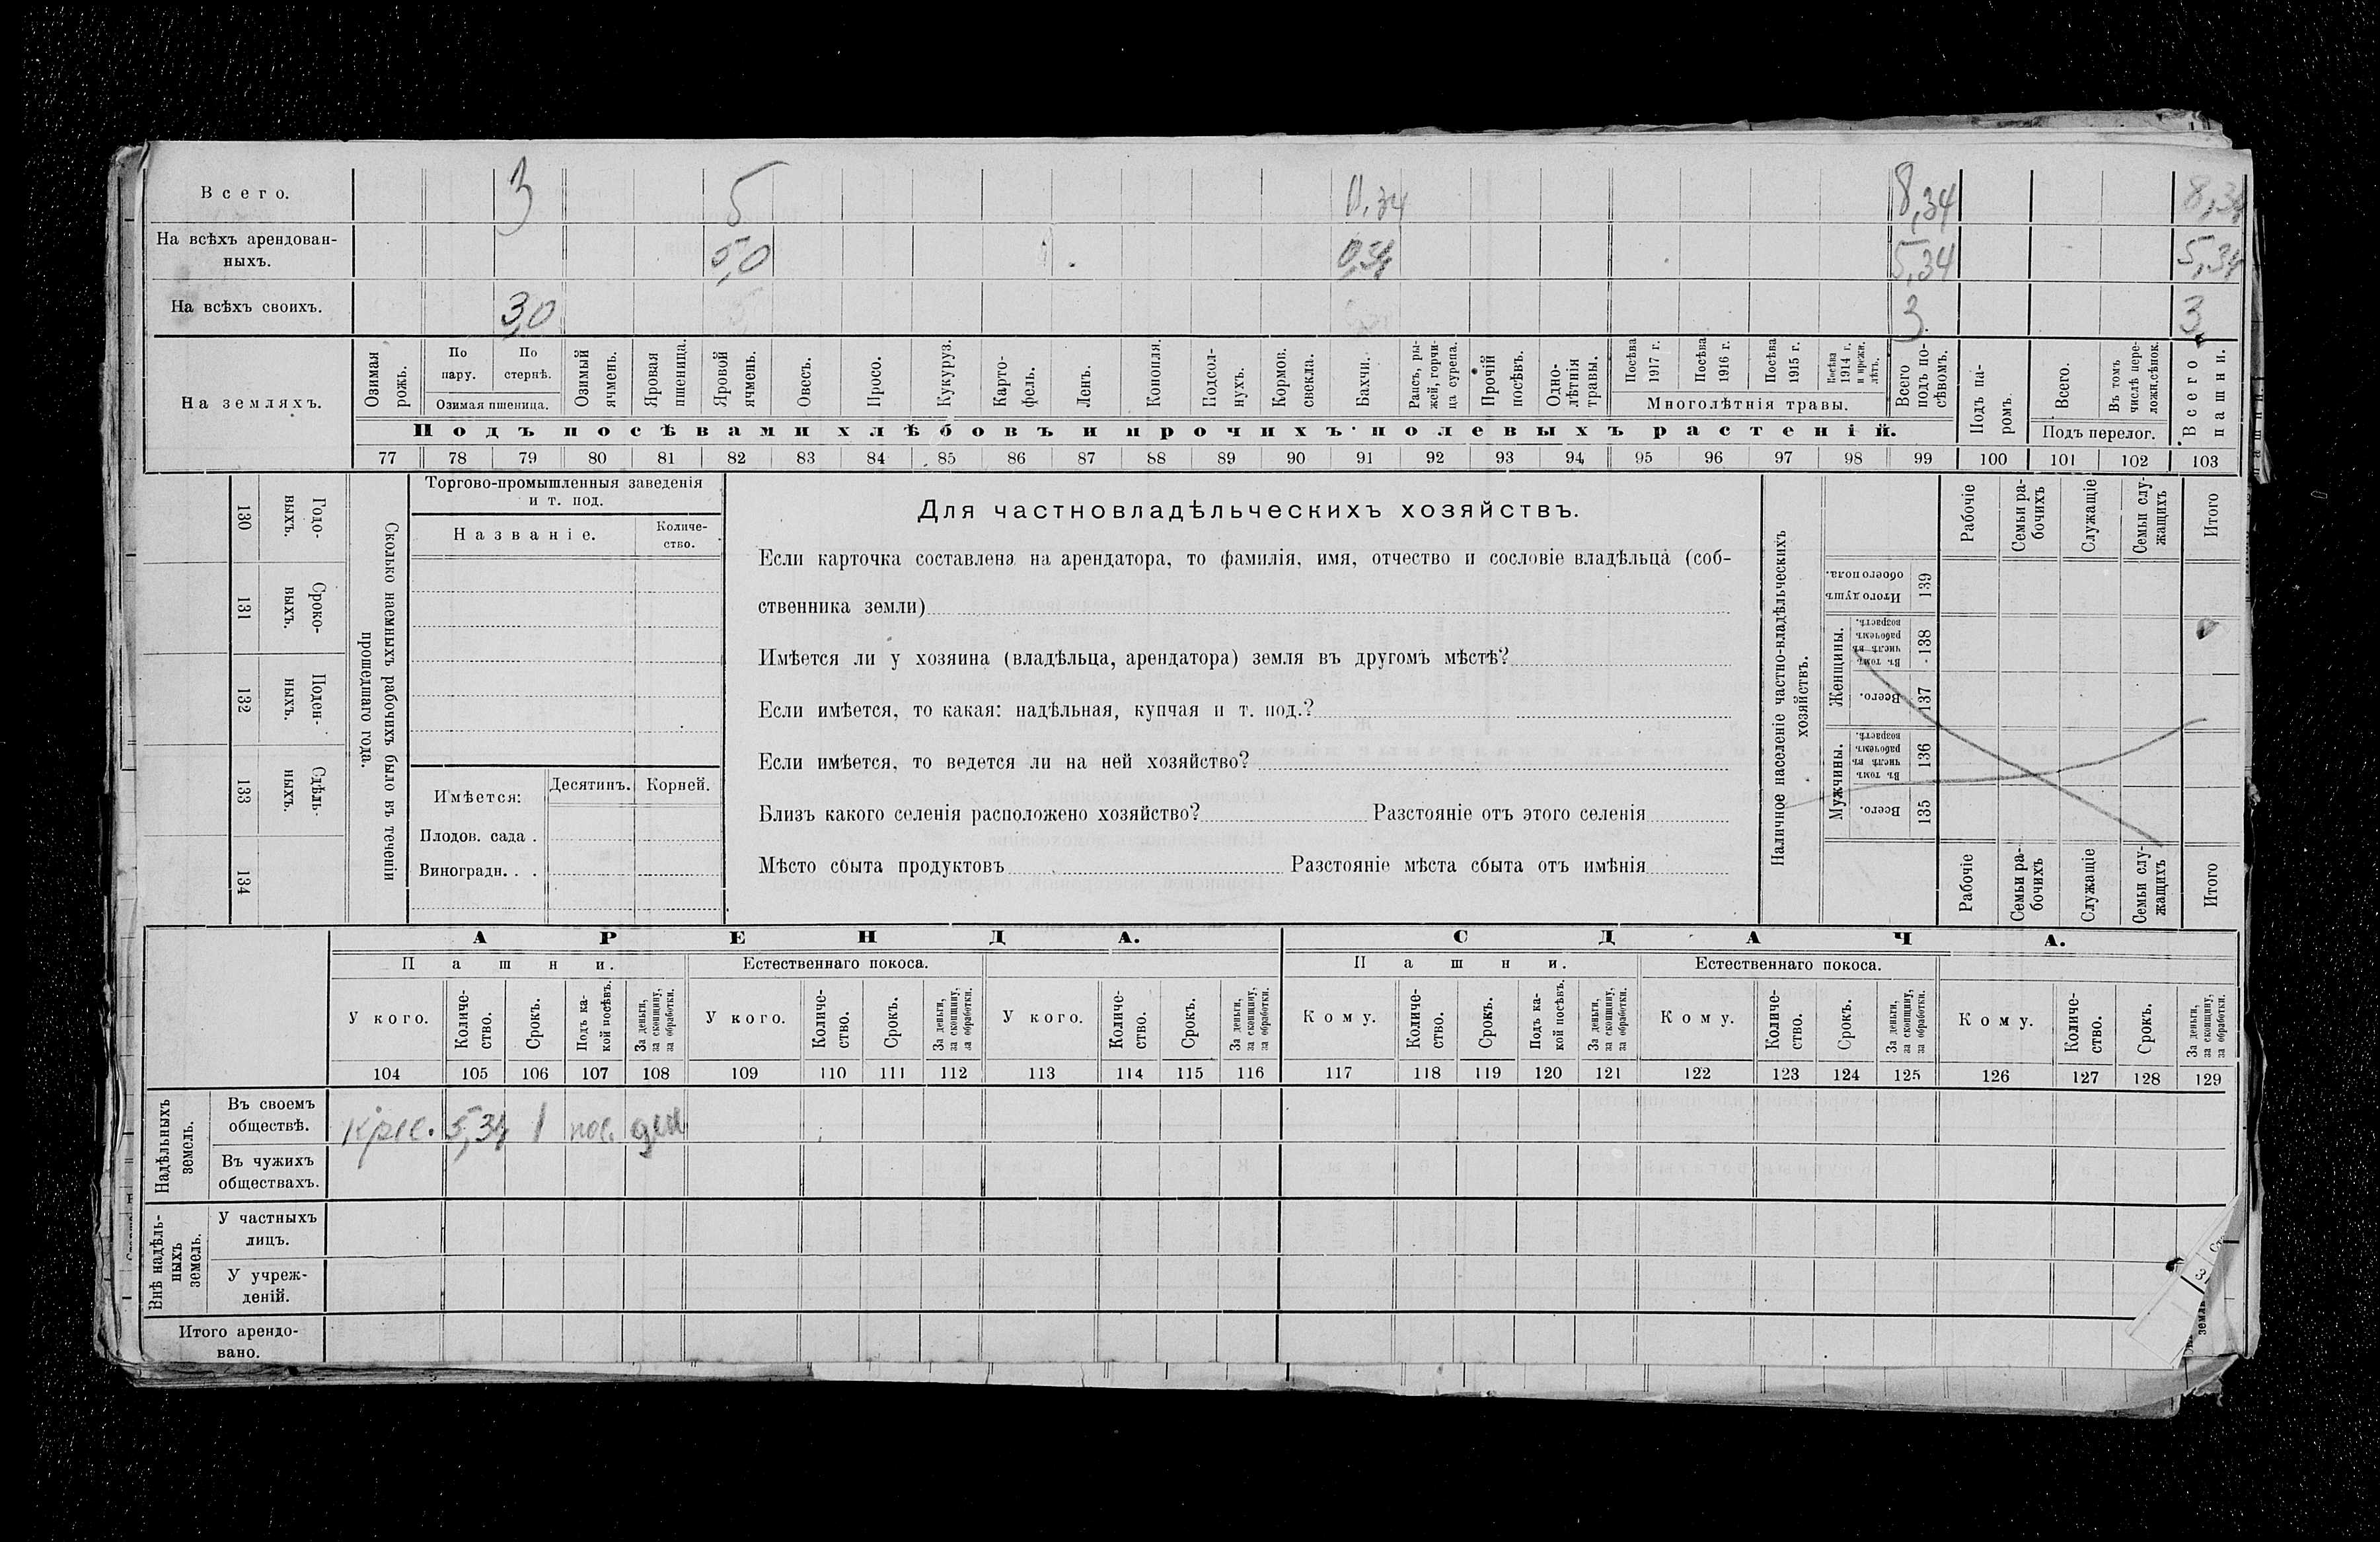 Всего. 3 5 0,34 8,34 8,34
На всѣхъ арендован-
ныхъ. 5,0 0,34 5,34 5,34
На всѣхъ своихъ. 3,0 3 3
На земляхъ.
Озимая рожь.
По пару.
По стернѣ.
Озимая пшеница.
Озимый ячмень.
Яровая пшеница.
Яровой ячмень.
Овесъ.
Просо.
Кукуруз.
Карто-
фель.
Ленъ.
Конопля.
Подсол-
нухъ.
Кормов.
свекла.
Бахчи.
Рапсъ, ры-
жей, горчи-
ца сурепа.
Прочій посѣвъ.
Одно-
лѣтнія травы.
Посѣва 1917 г.
Посѣва 1916 г.
Посѣва 1915 г.
Посѣва 1914 г. и прежн. лѣтъ.
Многолѣтнія травы.
Всего подъ по-
сѣвомъ.
Подъ па-
ромъ.
Всего.
Въ томъ числѣ пере-
ложн. сѣнок.
Подъ перелог.
Всего пашни.
Подъ посѣвами хлѣбовъ и прочихъ полевыхъ растеній.
77 78 79 80 81 82 83 84 85 86 87 88 89 90 91 92 93 94 95 96 97 98 99 100 101 102 103
130 Годо-
выхъ.
131 Сроко-
выхъ.
132 Поден-
ныхъ.
133 Сдѣль-
ныхъ.
134
Сколько наемныхъ рабочихъ было въ теченіи
прошедшаго года.
Торгово-промышленныя заведенія
и т. под.
Названіе.
Количе-
ство.
Имѣется: Десятинъ. Корней.
Плодов. сада .
Виноградн. . .
Для частновладѣльческихъ хозяйствъ.
Если карточка составлена на арендатора, то фамилія, имя, отчество и сословіе владѣльца (соб-
ственника земли)
Имѣется ли у хозяина (владѣльца, арендатора) земля въ другомъ мѣстѣ?
Если имѣется, то какая: надѣльная, купчая и т. под.?
Если имѣется, то ведется ли на ней хозяйство?
Близъ какого селенія расположено хозяйство? Разстояніе отъ этого селенія
Мѣсто сбыта продуктовъ Разстояніе мѣста сбыта отъ имѣнія
Наличное населеніе частно-владѣльческихъ
хозяйствъ.
Рабочіе
Семьи ра-
бочихъ
Служащіе
Семьи слу-
жащихъ
Итого
Итого душъ обоего пола. 139
Женщины.
Въ томъ числѣ въ рабочемъ возрастѣ. 138
Всего. 137
Мужчины.
Въ томъ числѣ въ рабочемъ возрастѣ. 136
Всего. 135
Рабочіе
Семьи ра-
бочихъ
Служащіе
Семьи слу-
жащихъ
Итого
АРЕНДА. СДАЧА.
Пашни. Естественнаго покоса. Пашни. Естественнаго покоса.
У кого.
Количе-
ство.
Срокъ.
Подъ ка-
кой посѣвъ.
За деньги,
за скопщину,
за обработки.
У кого.
Количе-
ство.
Срокъ.
За деньги,
за скопщину,
за обработки.
У кого.
Количе-
ство.
Срокъ.
За деньги,
за скопщину,
за обработки.
Кому.
Количе-
ство.
Срокъ.
Подъ ка-
кой посѣвъ.
За деньги,
за скопщину,
за обработки.
Кому.
Количе-
ство.
Срокъ.
За деньги,
за скопщину,
за обработки.
Кому.
Количе-
ство.
Срокъ.
За деньги,
за скопщину,
за обработки.
104 105 106 107 108 109 110 111 112 113 114 115 116 117 118 119 120 121 122 123 124 125 126 127 128 129
Надѣльныхъ
земель.
Въ своемъ
обществѣ. крес. 5,34 1 пос. ден
Въ чужихъ
обществахъ.
Внѣ надѣль-
ныхъ
земель.
У частныхъ
лицъ.
У учреж-
деній.
Итого арендо-
вано.